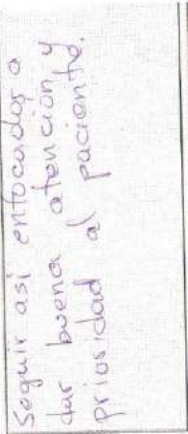 Seguir asi enfocados a
dar buena atencion y
prioridad al paciente.